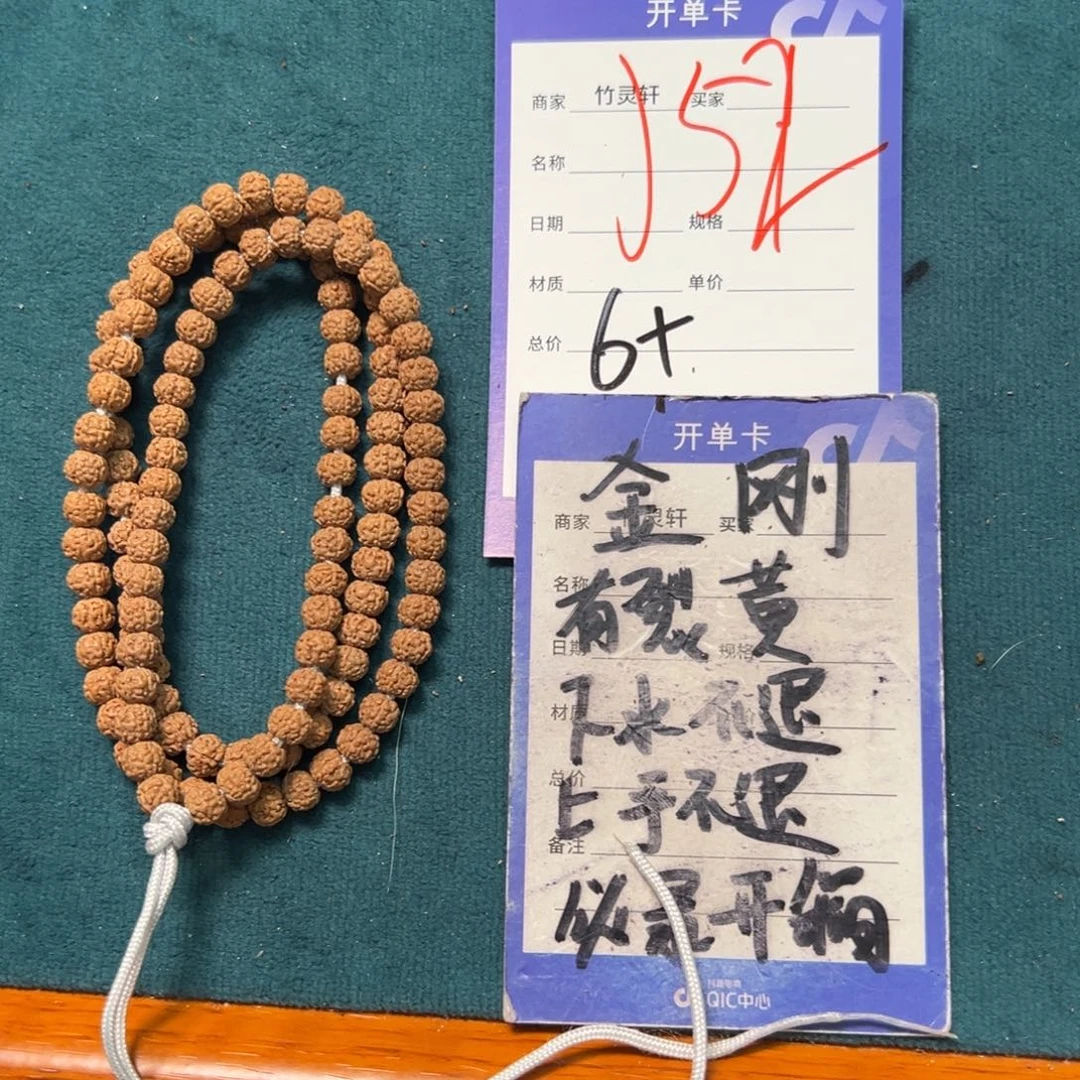 开单卡
商家 竹灵轩 买家
名称
日期 规格
材质 单价
总价 6+
开单卡
金刚
商家 灵轩 买家
名称
有裂 黄
日期 规格
下水不退
材质
总价
上手不退
备注
必录开箱
QIC中心